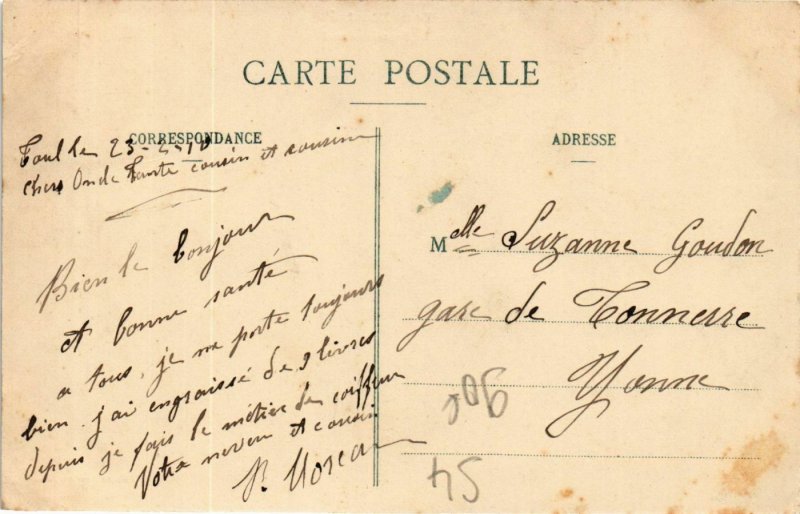 CARTE POSTALE
CORRESPONDANCE
Toul le 23-2-10
Chers Oncle Tante cousin et cousine
Bien le bonjour
et bonne santé
a tous, je me porte toujours
bien j'ai engraissé de 9 livres
depuis je fais le métier de coiffeur
Votre neveu et cousin
P. Moreau
ADRESSE
Melle Suzanne Goudon
gare de Tonnerre
Yonne
54